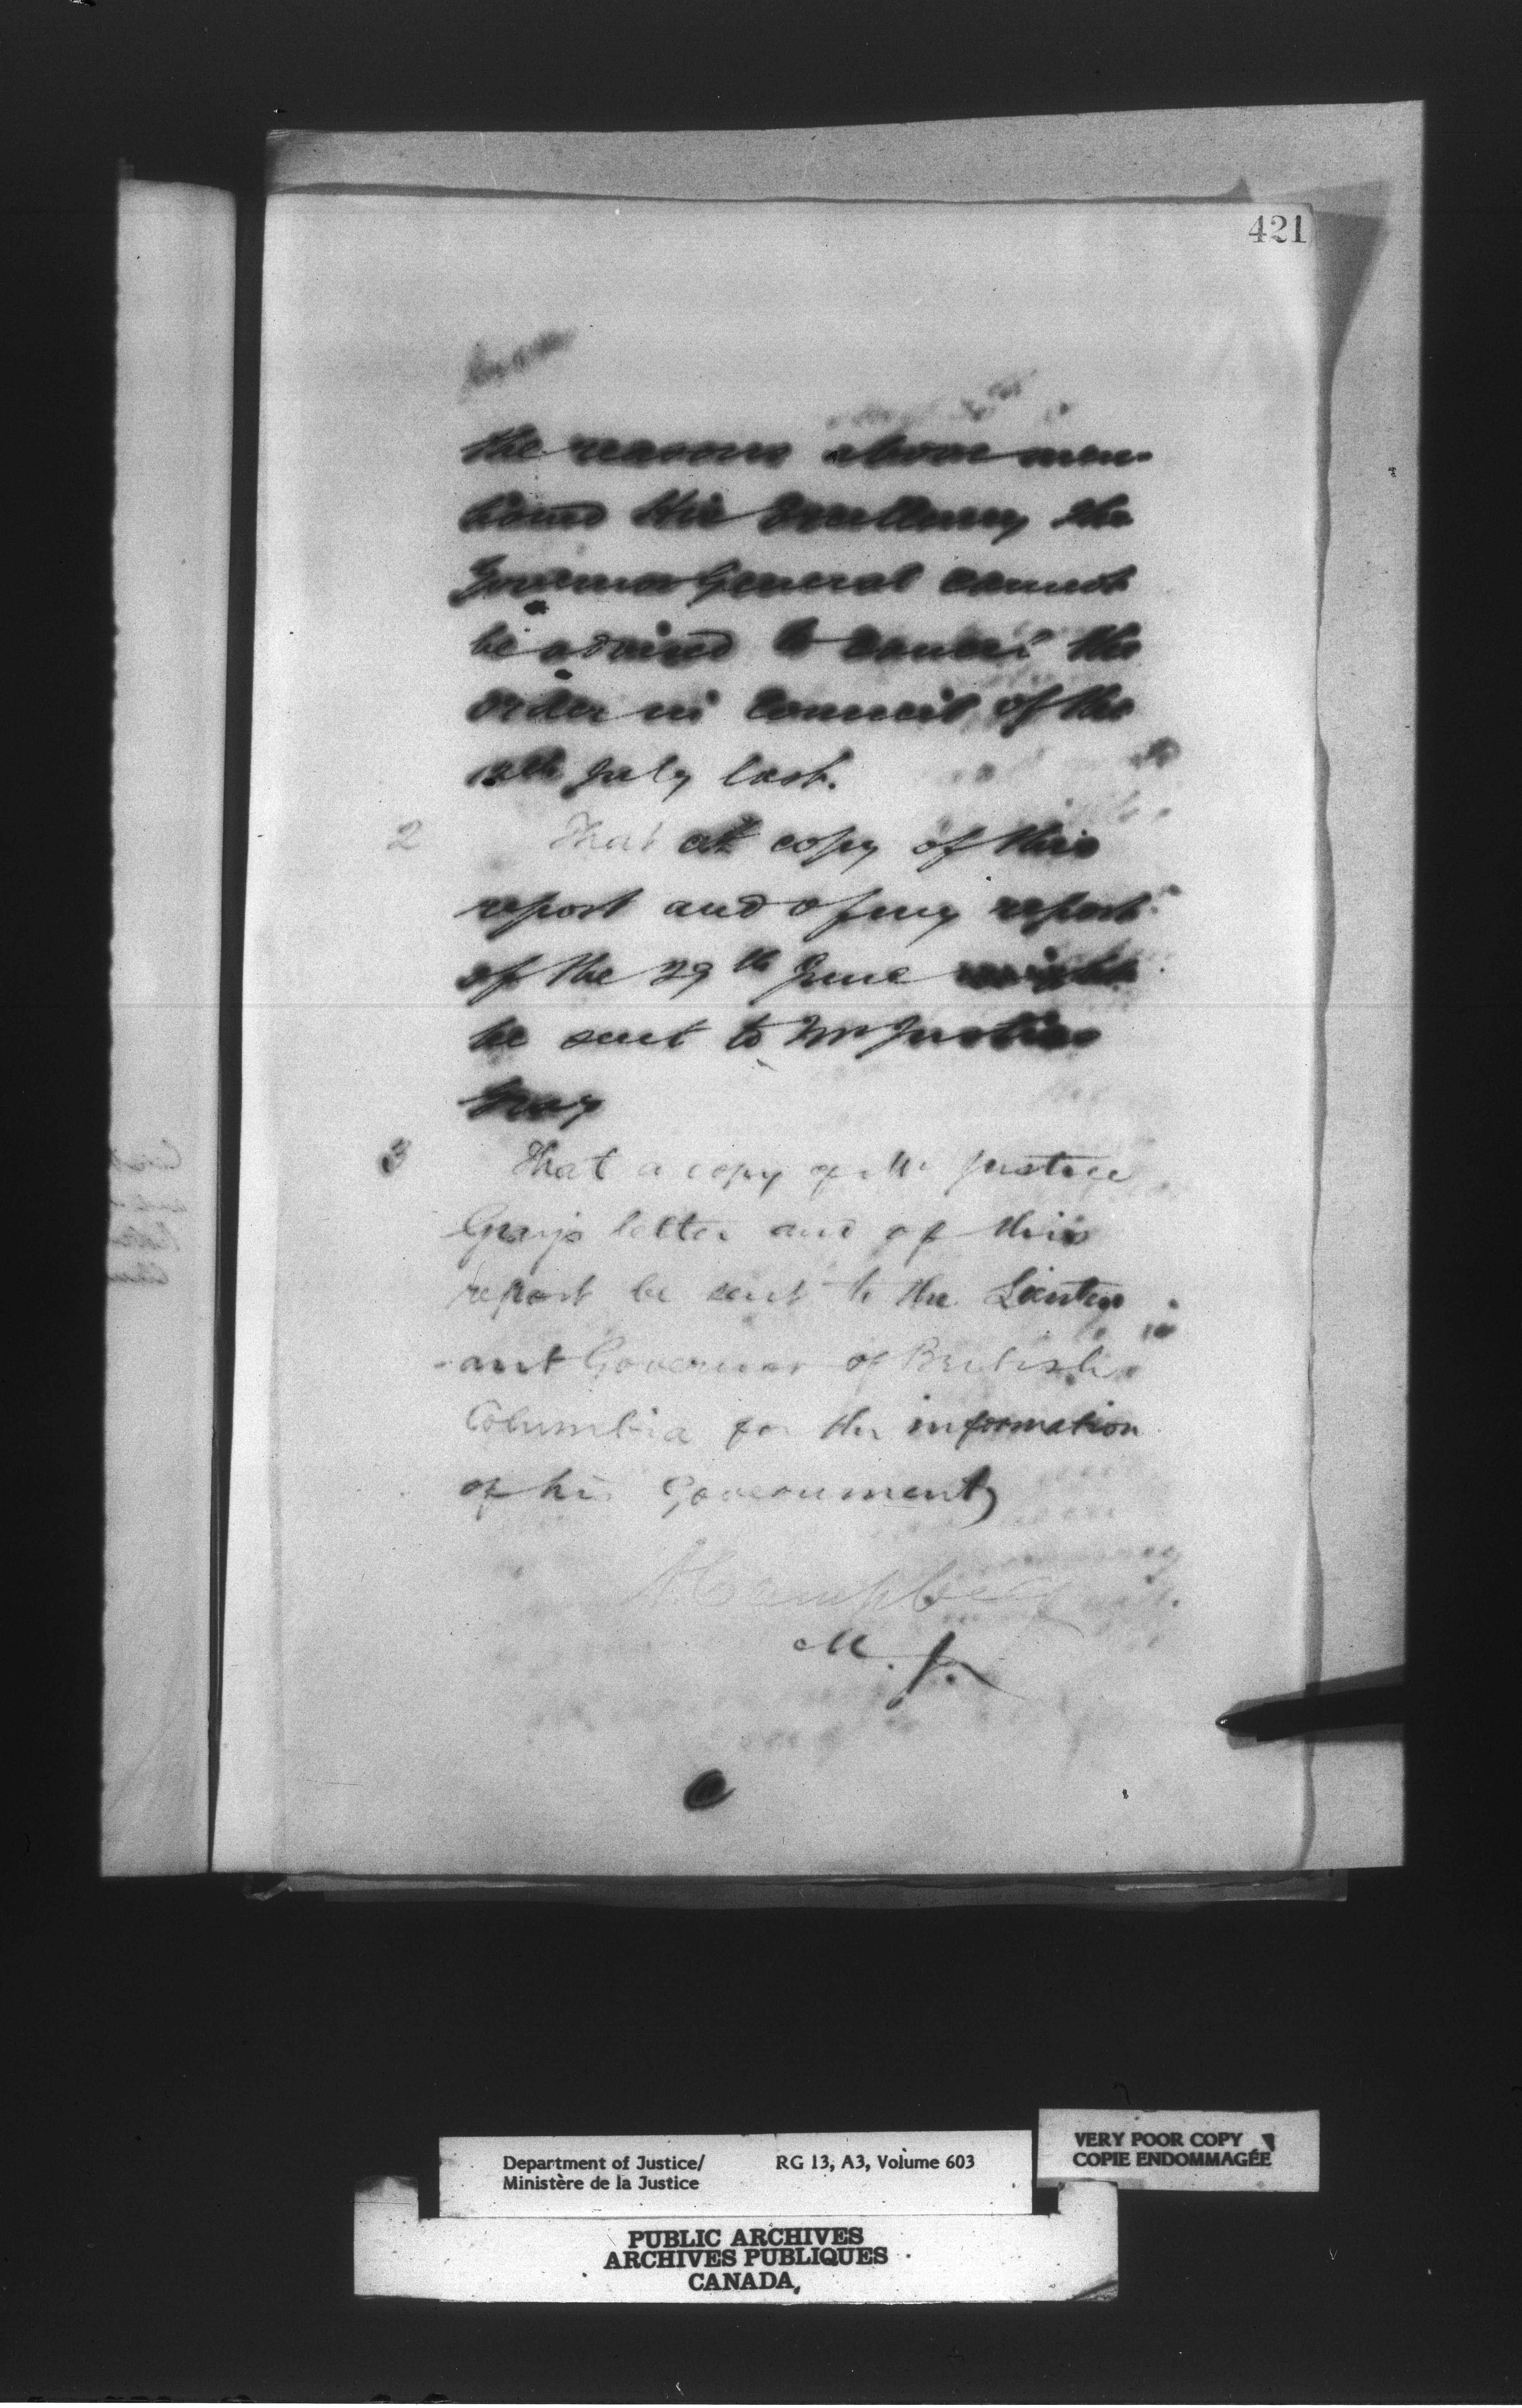 421
the reasons above men-
tioned His Excellency the
Governor General cannot
be advised to cancel the
order in Council of the
12th July last.
2 That a copy of this
report and of my report
of the 29th June might
be sent to Mr Justice
Gray
3 That a copy of Mr Justice
Gray's letter and of this
report be sent to the Lieuten
-ant Governor of British
Columbia for the information
of his Government
A Campbell
M. J.
Department of Justice/ RG 13, A3, Volume 603
Ministère de la Justice
VERY POOR COPY
COPIE ENDOMMAGÉE
PUBLIC ARCHIVES
ARCHIVES PUBLIQUES
CANADA